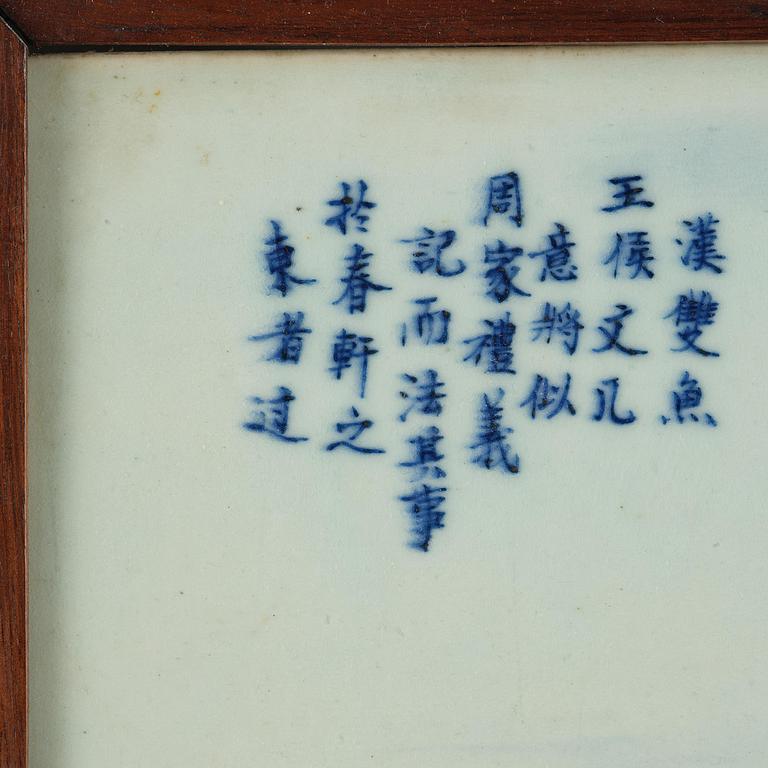 漢雙魚
王侯文几
意將似
周家禮義
記而法其事
扵春軒之
東者过